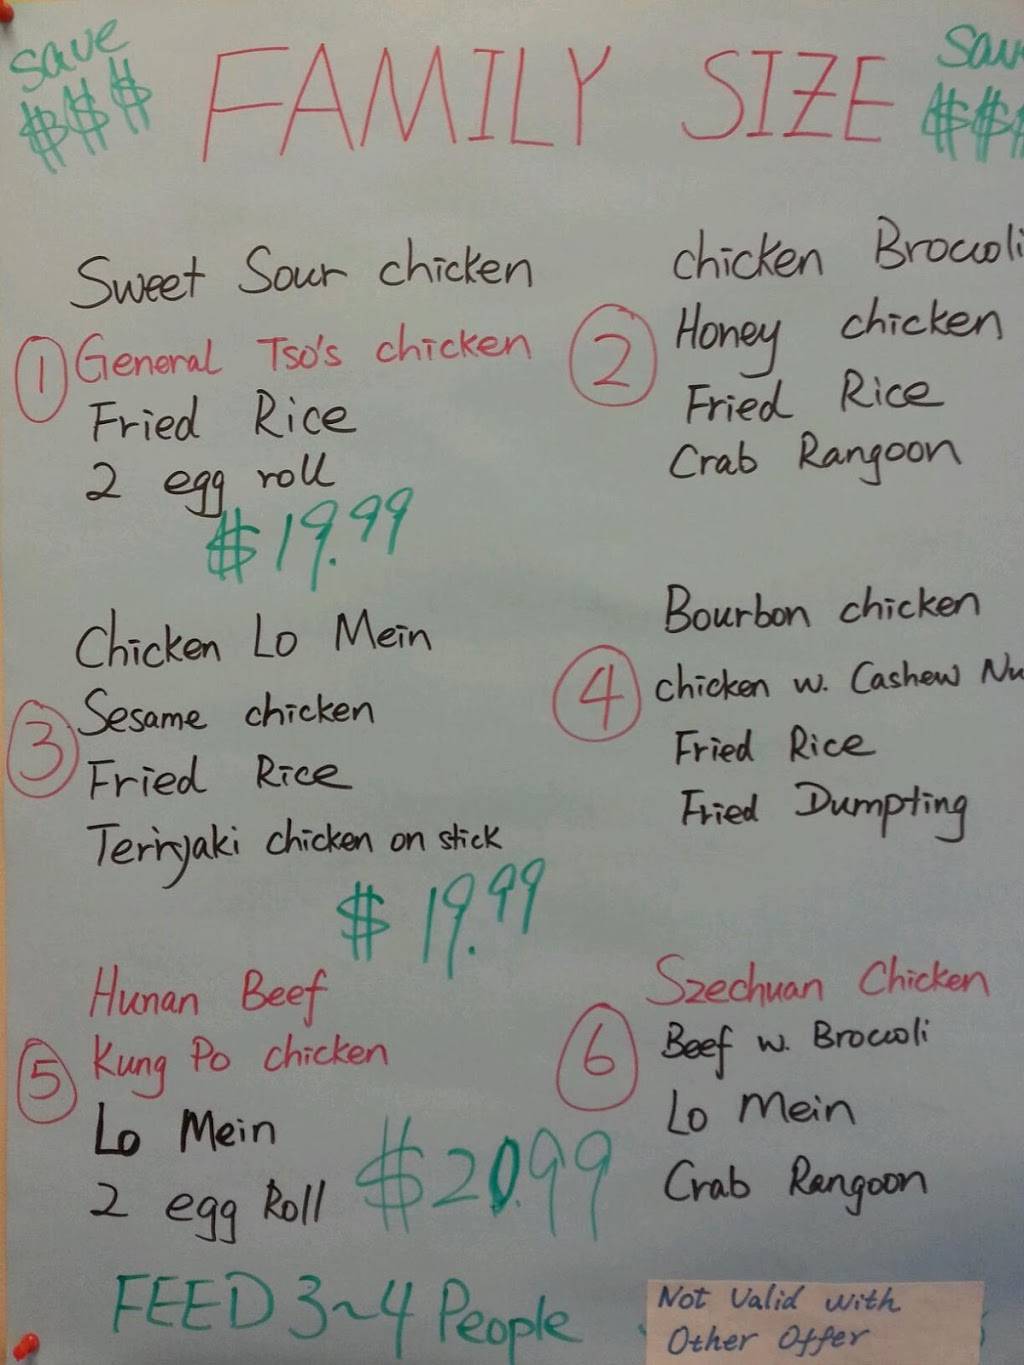 save
$$$
FAMILY SIZE
Sav
$$$
Sweet Sour chicken
① General Tso's chicken
Fried Rice
2 egg roll
$19.99
chicken Broccoli
② Honey chicken
Fried Rice
Crab Rangoon
Chicken Lo Mein
③ Sesame chicken
Fried Rice
Teriyaki chicken on stick
$19.99
Bourbon chicken
④ chicken w. Cashew Nu
Fried Rice
Fried Dumpting
Hunan Beef
⑤ Kung Po chicken
Lo Mein
2 egg Roll
$20.99
Szechuan Chicken
⑥ Beef w. Broccoli
Lo Mein
Crab Rangoon
FEED 3~4 People
Not Valid with
Other Offer